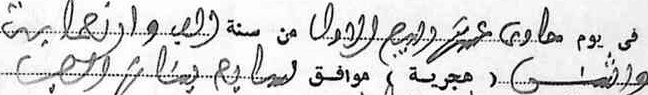 فى يوم حادى عشر ربيع الاول من سنة الف واربعماية
واثنين ( هجرية ) موافق لسابع يناير الف